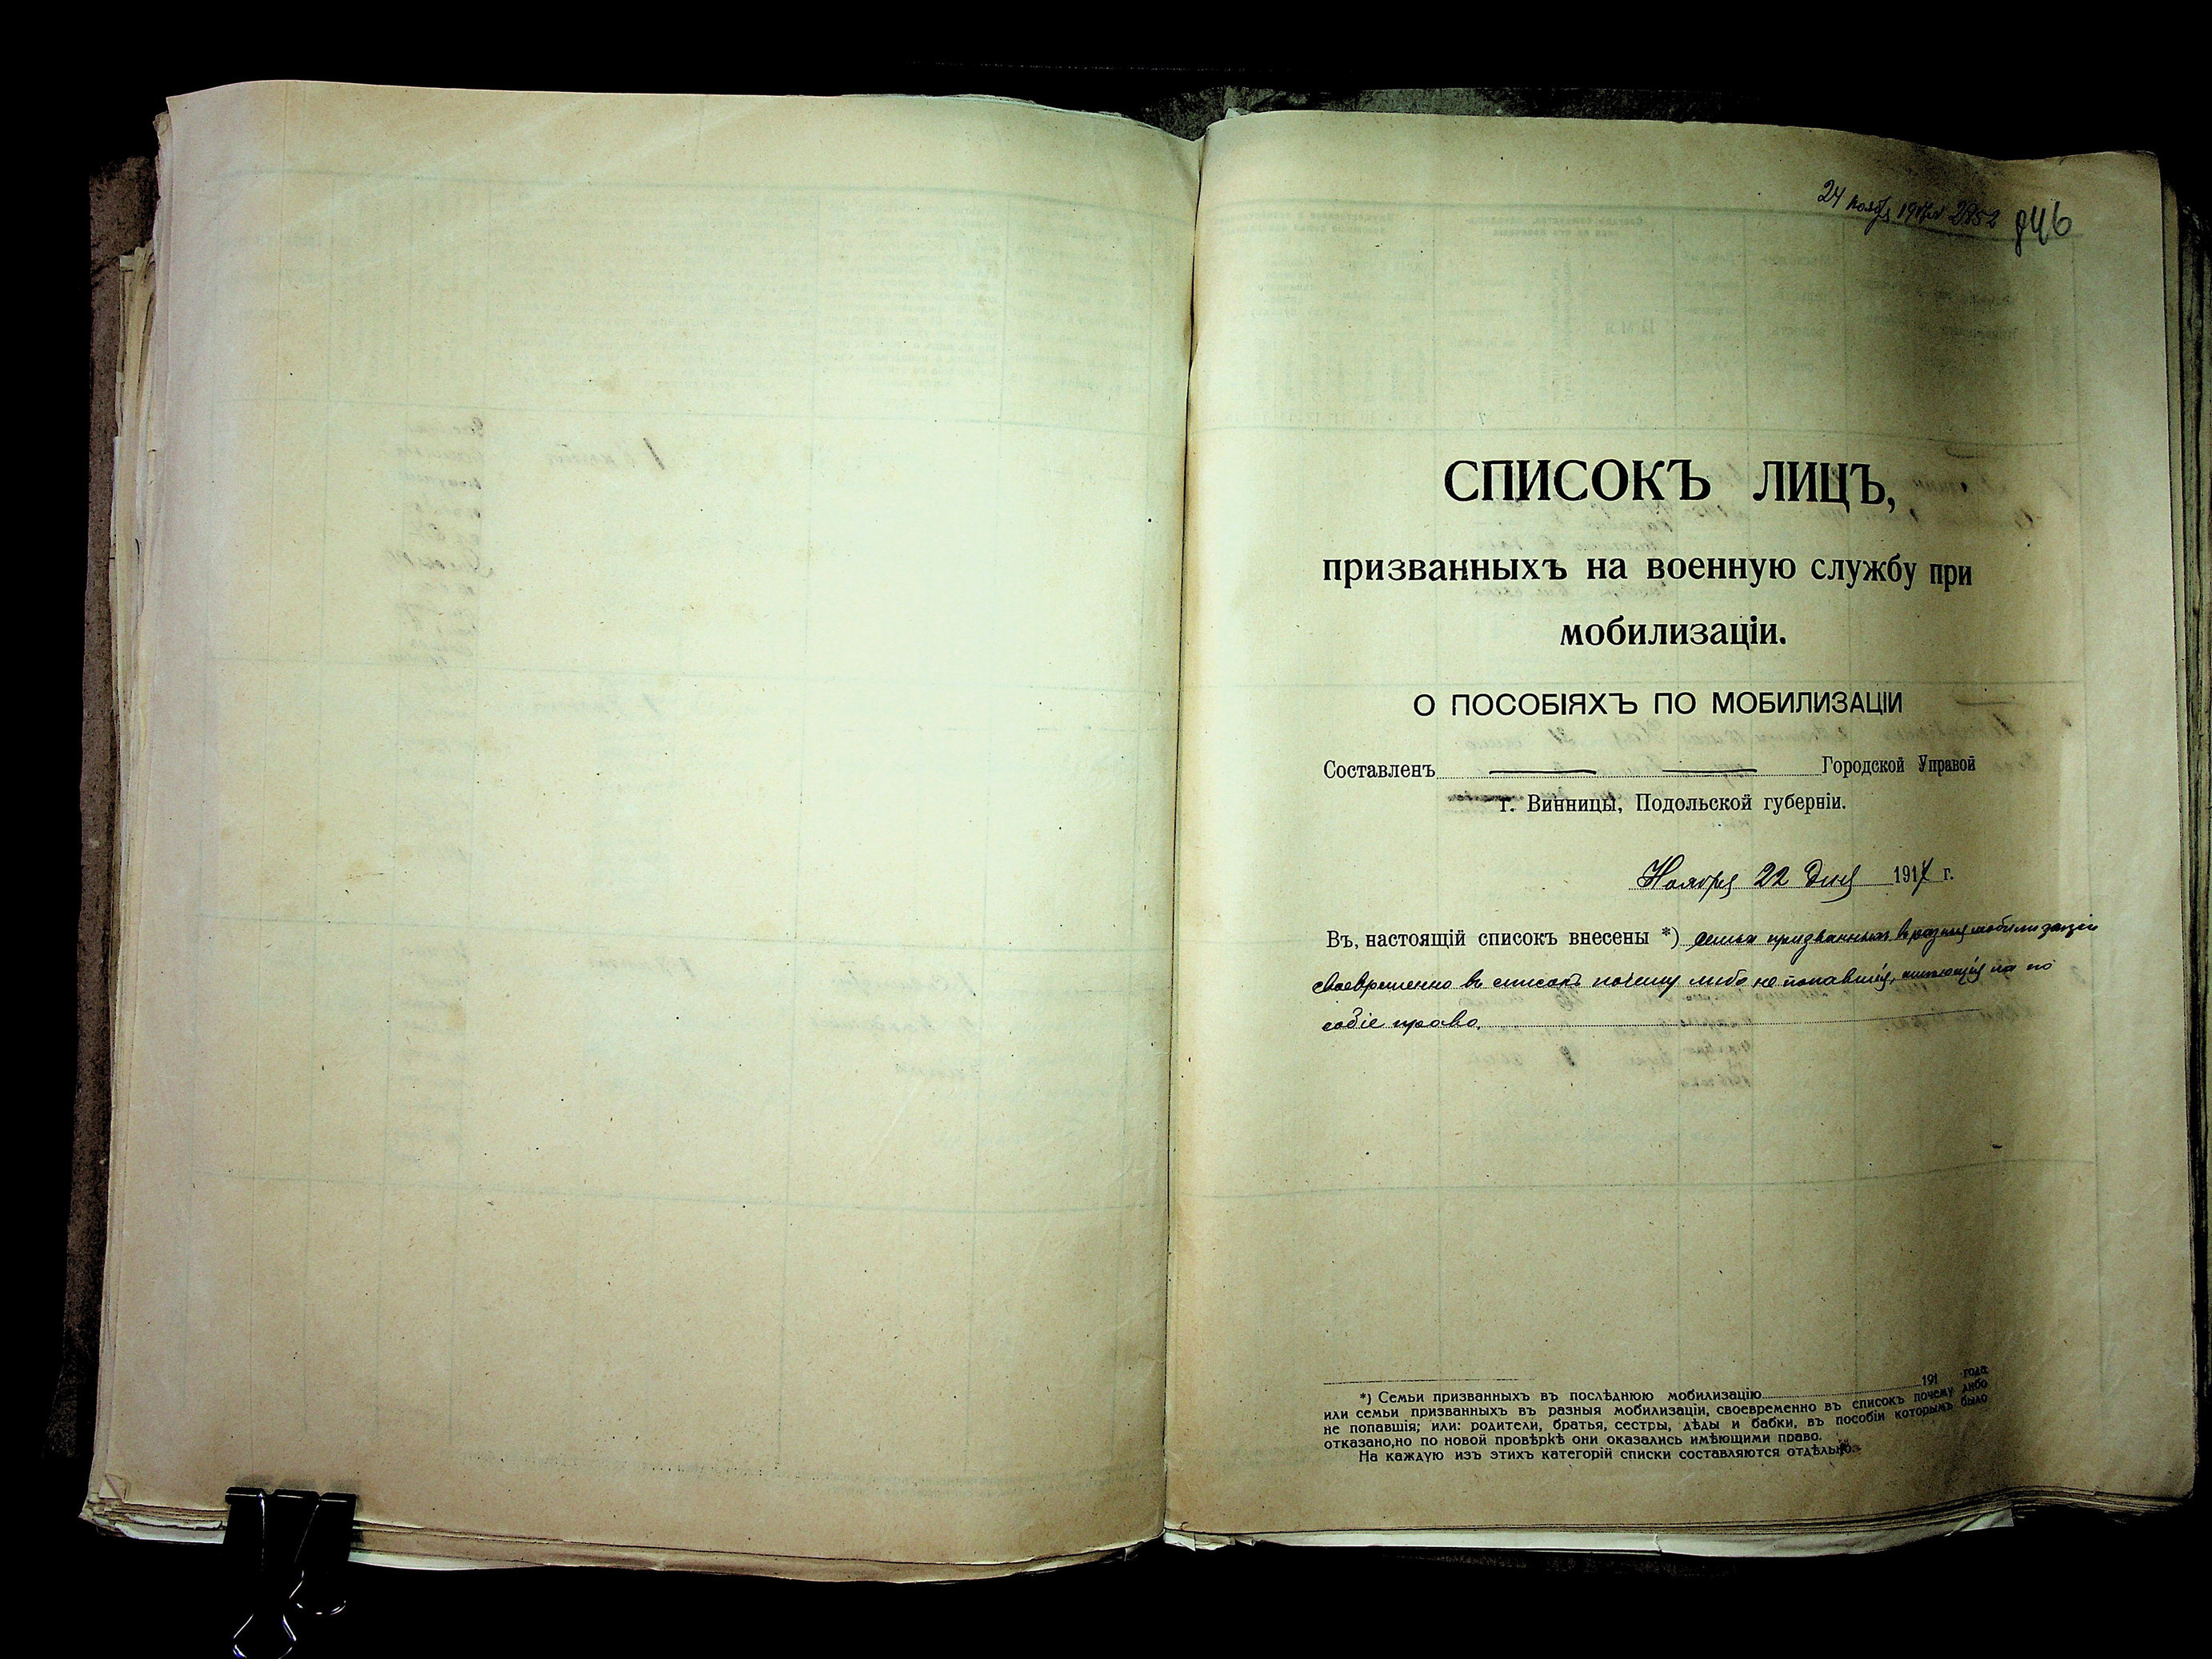 24 нояб 1917 № 2852 846
СПИСОКЪ ЛИЦЪ,
призванныхъ на военную службу при
мобилизаціи.
О ПОСОБІЯХЪ ПО МОБИЛИЗАЦІИ
Составленъ Городской Управой
г. Винницы, Подольской губерніи.
Ноября 22 дня 1917 г.
Въ, настоящій списокъ внесены *) семьи призванныхъ в разныя мобилизаціи
своевременно въ списокъ почему либо не попавшія, имѣющія на по
собіе право.
*) Семьи призванныхъ въ послѣднюю мобилизацію 191 года
или семьи призванныхъ въ разныя мобилизаціи, своевременно въ списокъ почему либо
не попавшія; или: родители, братья, сестры, дѣды и бабки, въ пособіи которымъ было
отказано,но по новой провѣркѣ они оказались имѣющими право.
На каждую изъ этихъ категорій списки составляются отдѣльно.